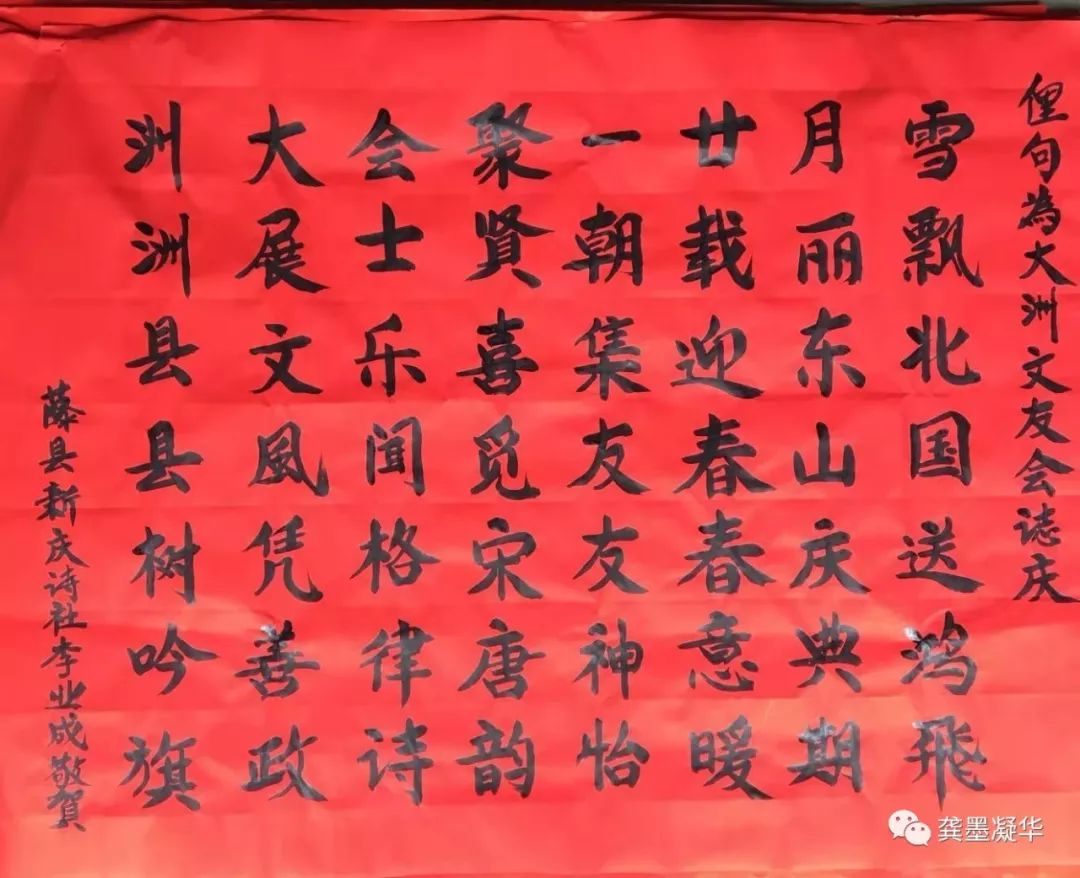 俚句為大洲文友会誌庆
雪飘北国送鸿飛
月丽东山庆典期
廿载迎春春意暖
一朝集友友神怡
聚賢喜觅宋唐韵
会士乐闻格律诗
大展文風凭善政
洲洲县县树吟旗
藤县新庆诗社李业成敬賀
龚墨凝华